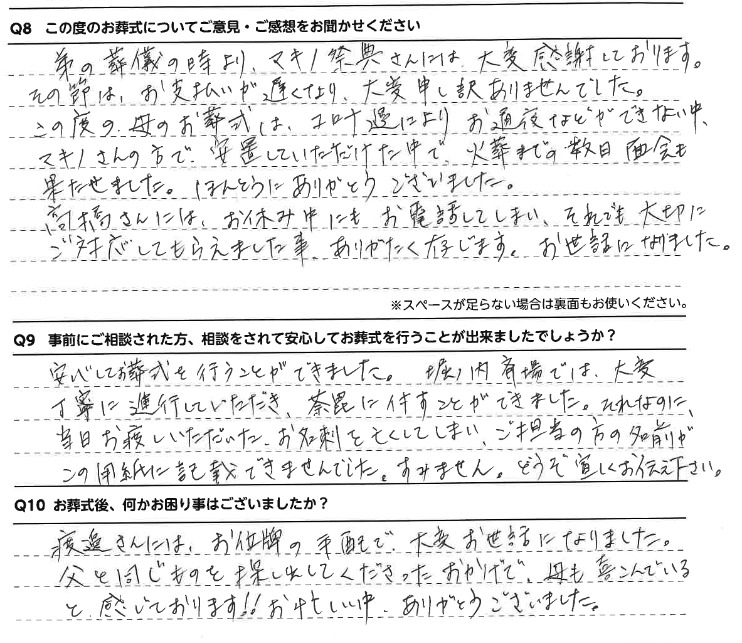 Q8 この度のお葬式についてご意見・ご感想をお聞かせください
弟の葬儀の時より、マキノ祭典さんには、大変感謝しております。
その節は、お支払いが遅くなり、大変申し訳ありませんでした。
この度の、母のお葬式は、コロナ過により お通夜などができない中、
マキノさんの方で、安置していただけた中で、火葬までの数日 面会も
果たせました。ほんとうにありがとう ございました。
高橋さんには、お休み中にも お電話してしまい、それでも 大切に
ご対応してもらえました事、ありがたく存じます。お世話になりました。
※スペースが足らない場合は裏面もお使いください。
Q9 事前にご相談された方、相談をされて安心してお葬式を行うことが出来ましたでしょうか？
安心してお葬式を行うことができました。 堀ノ内斎場では、大変
丁寧に進行していただき、荼毘に付すことができました。それなのに、
当日お渡しいただいた、お名刺を亡くしてしまい、ご担当の方の名前が
この用紙に記載できませんでした。すみません。どうぞ宜しくお伝え下さい。
Q10 お葬式後、何かお困り事はございましたか？
渡邉さんには、お位牌の手配で、大変お世話になりました。
父と同じものを探し出してくださったおかげで、母も喜こんでいる
と、感じております!!お忙しい中、ありがとうございました。